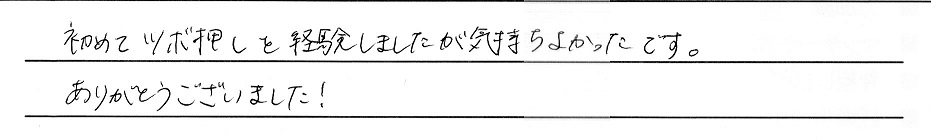 初めてツボ押しを経験しましたが気持ちよかったです。
ありがとうございました!